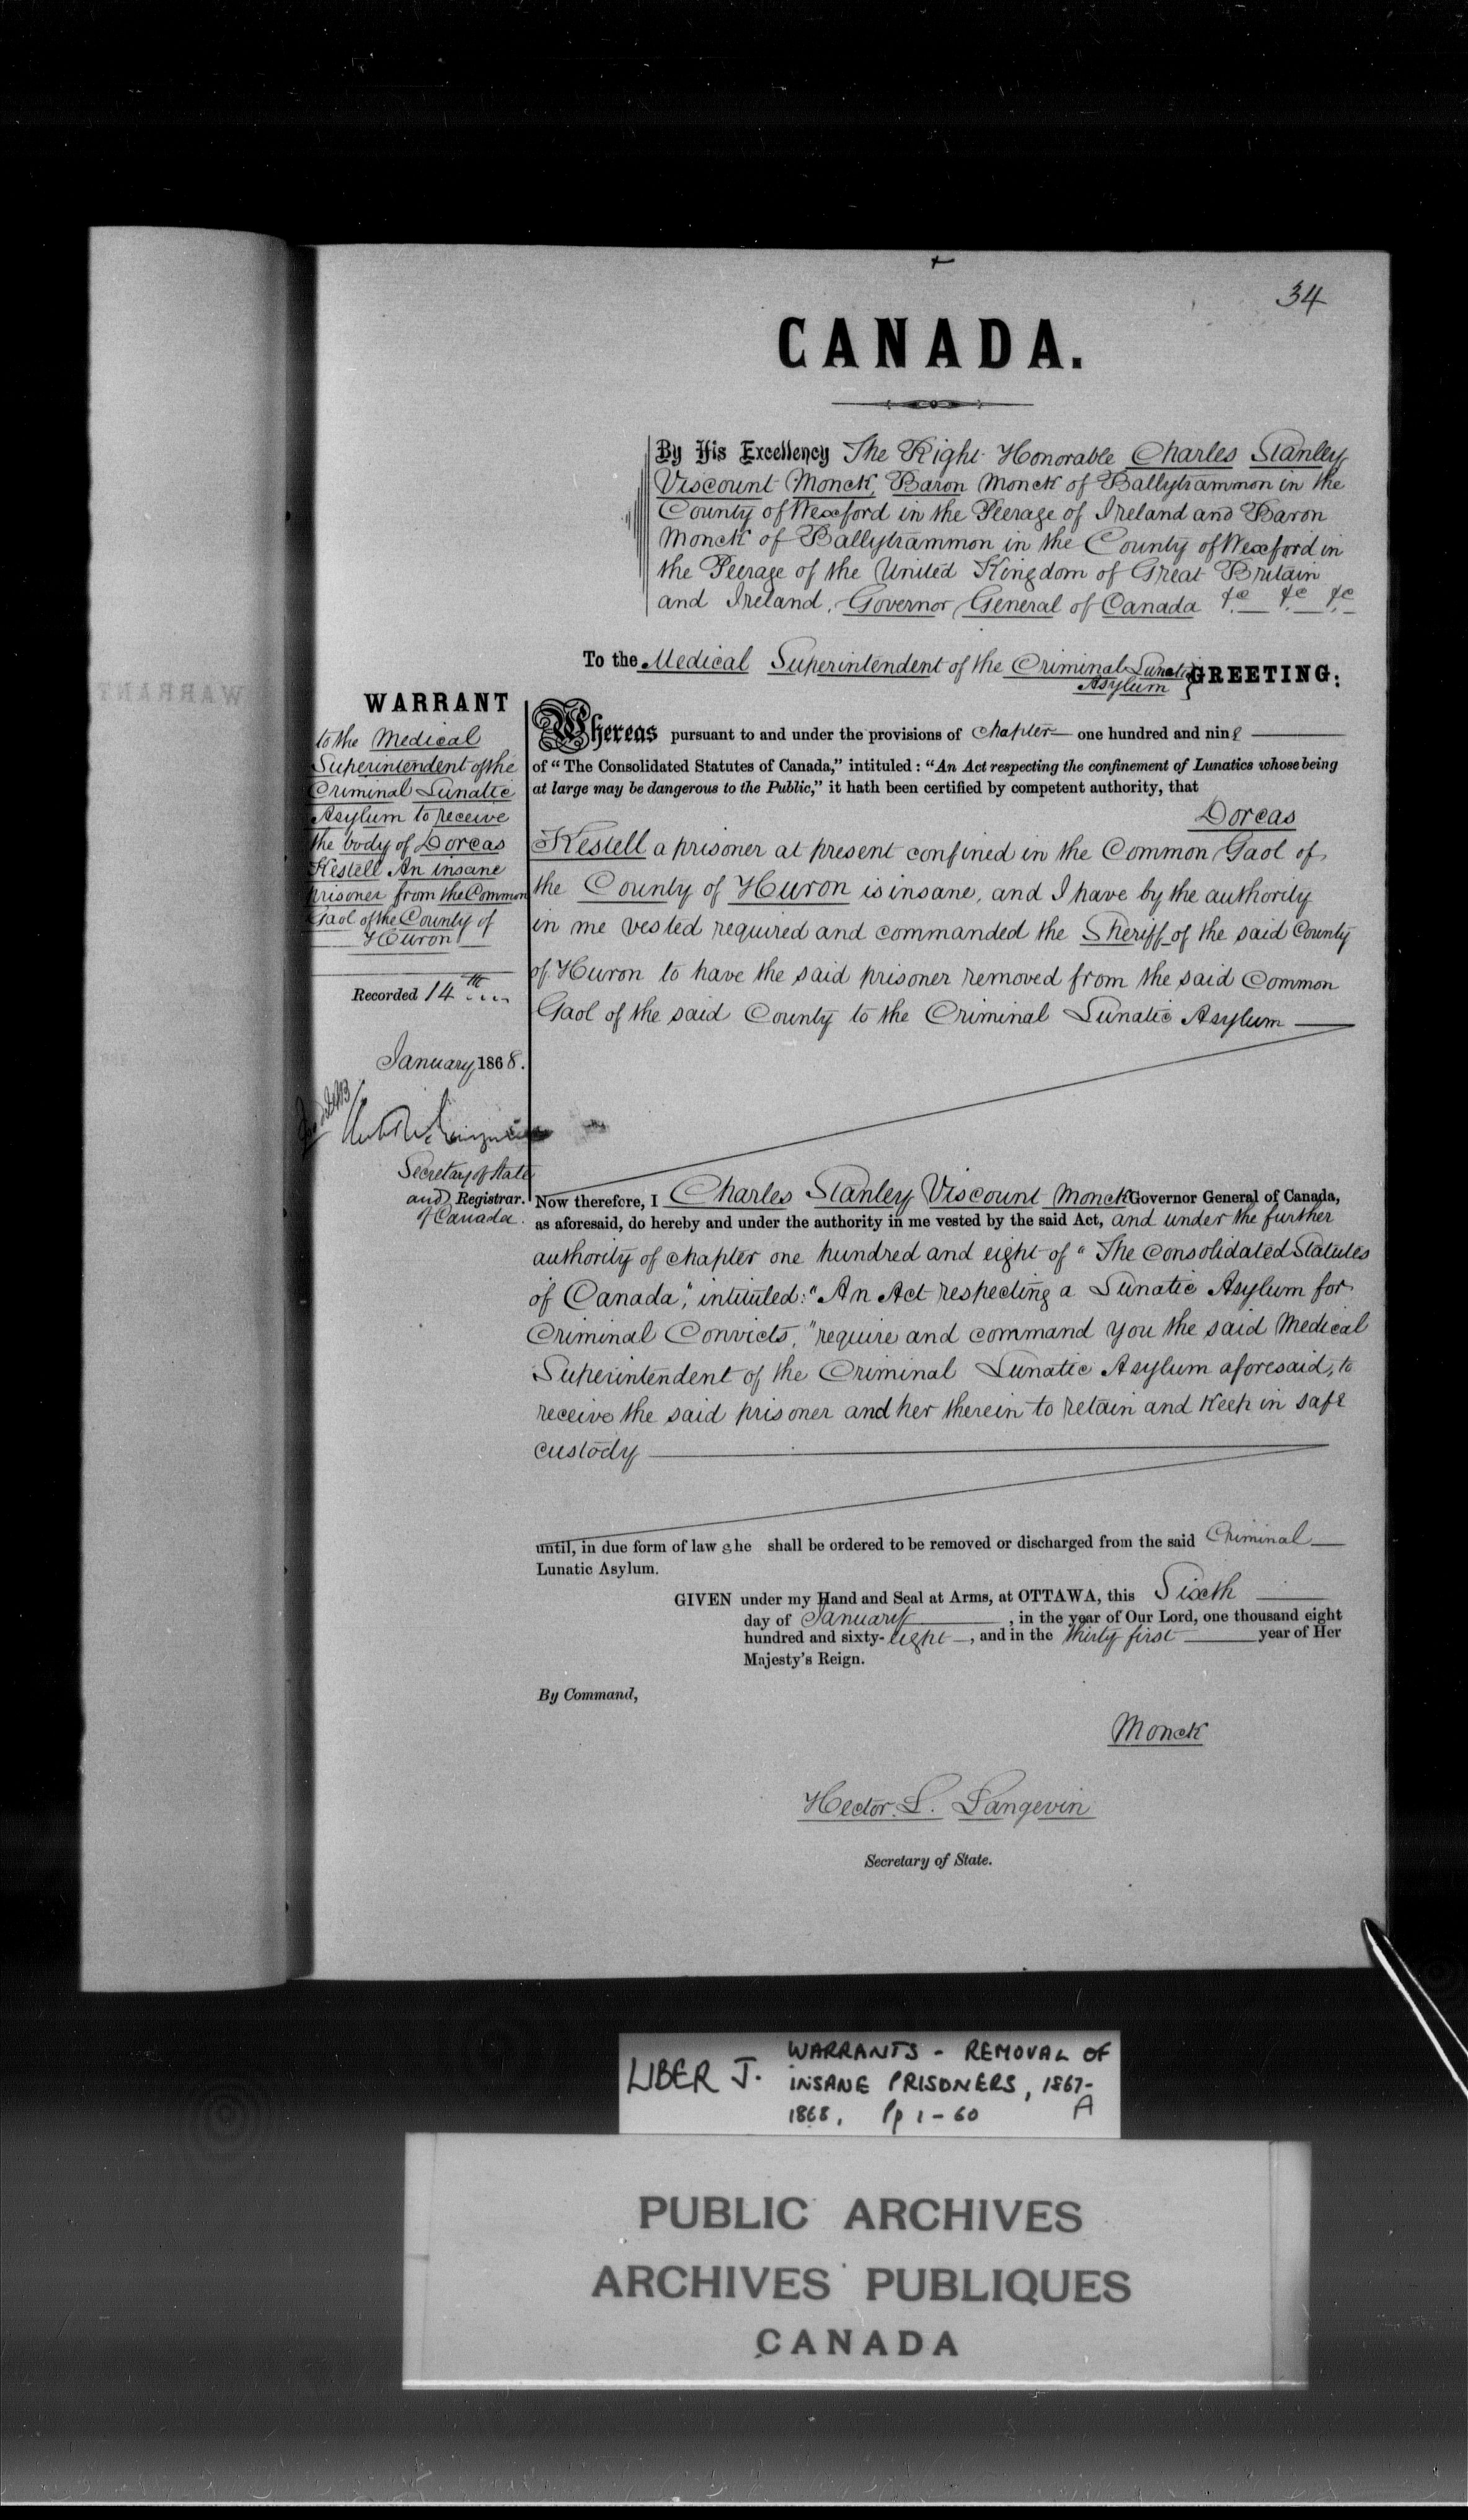 34
CANADA.
By His Excellency The Right Honorable Charles Stanley
Viscount Monck, Baron Monck of Ballytrammon in the
County of Wexford in the Peerage of Ireland and Baron
Monck of Ballytrammon in the County of Wexford in
the Peerage of the United Kingdom of Great Britain
and Ireland, Governor General of Canada &c &c &c
To the Medical Superintendent of the Criminal Lunatic
Asylum } GREETING:
WARRANT
to the Medical
Superintendent of the
Criminal Lunatic
Asylum to receive
the body of Dorcas
Kestell An insane
prisoner from the Common
Gaol of the County of
Huron
Recorded 14th
January, 1868.
Secretary of State
and Registrar.
of Canada.
Whereas pursuant to and under the provisions of chapter one hundred and nine
of "The Consolidated Statutes of Canada," intituled: "An Act respecting the confinement of Lunatics whose being
at large may be dangerous to the Public," it hath been certified by competent authority, that
Dorcas
Kestell a prisoner at present confined in the Common Gaol of
the County of Huron is insane, and I have by the authority
in me vested required and commanded the Sheriff of the said County
of Huron to have the said prisoner removed from the said Common
Gaol of the said County to the Criminal Lunatic Asylum
Now therefore, I Charles Stanley Viscount Monck Governor General of Canada,
as aforesaid, do hereby and under the authority in me vested by the said Act, and under the further
authority of chapter one hundred and eight of "The Consolidated Statutes
of Canada," intituled: "An Act respecting a Lunatic Asylum for
Criminal Convicts," require and command you the said Medical
Superintendent of the Criminal Lunatic Asylum aforesaid, to
receive the said prisoner and her therein to retain and keep in safe
custody
until, in due form of law she shall be ordered to be removed or discharged from the said Criminal
Lunatic Asylum.
GIVEN under my Hand and Seal at Arms, at OTTAWA, this Sixth
day of January, in the year of Our Lord, one thousand eight
hundred and sixty-eight, and in the thirty first year of Her
Majesty's Reign.
By Command,
Monck
Hector. L. Langevin
Secretary of State.
LIBER J. WARRANTS - REMOVAL OF
INSANE PRISONERS, 1867-
1868, Pp 1-60 A
PUBLIC ARCHIVES
ARCHIVES PUBLIQUES
CANADA